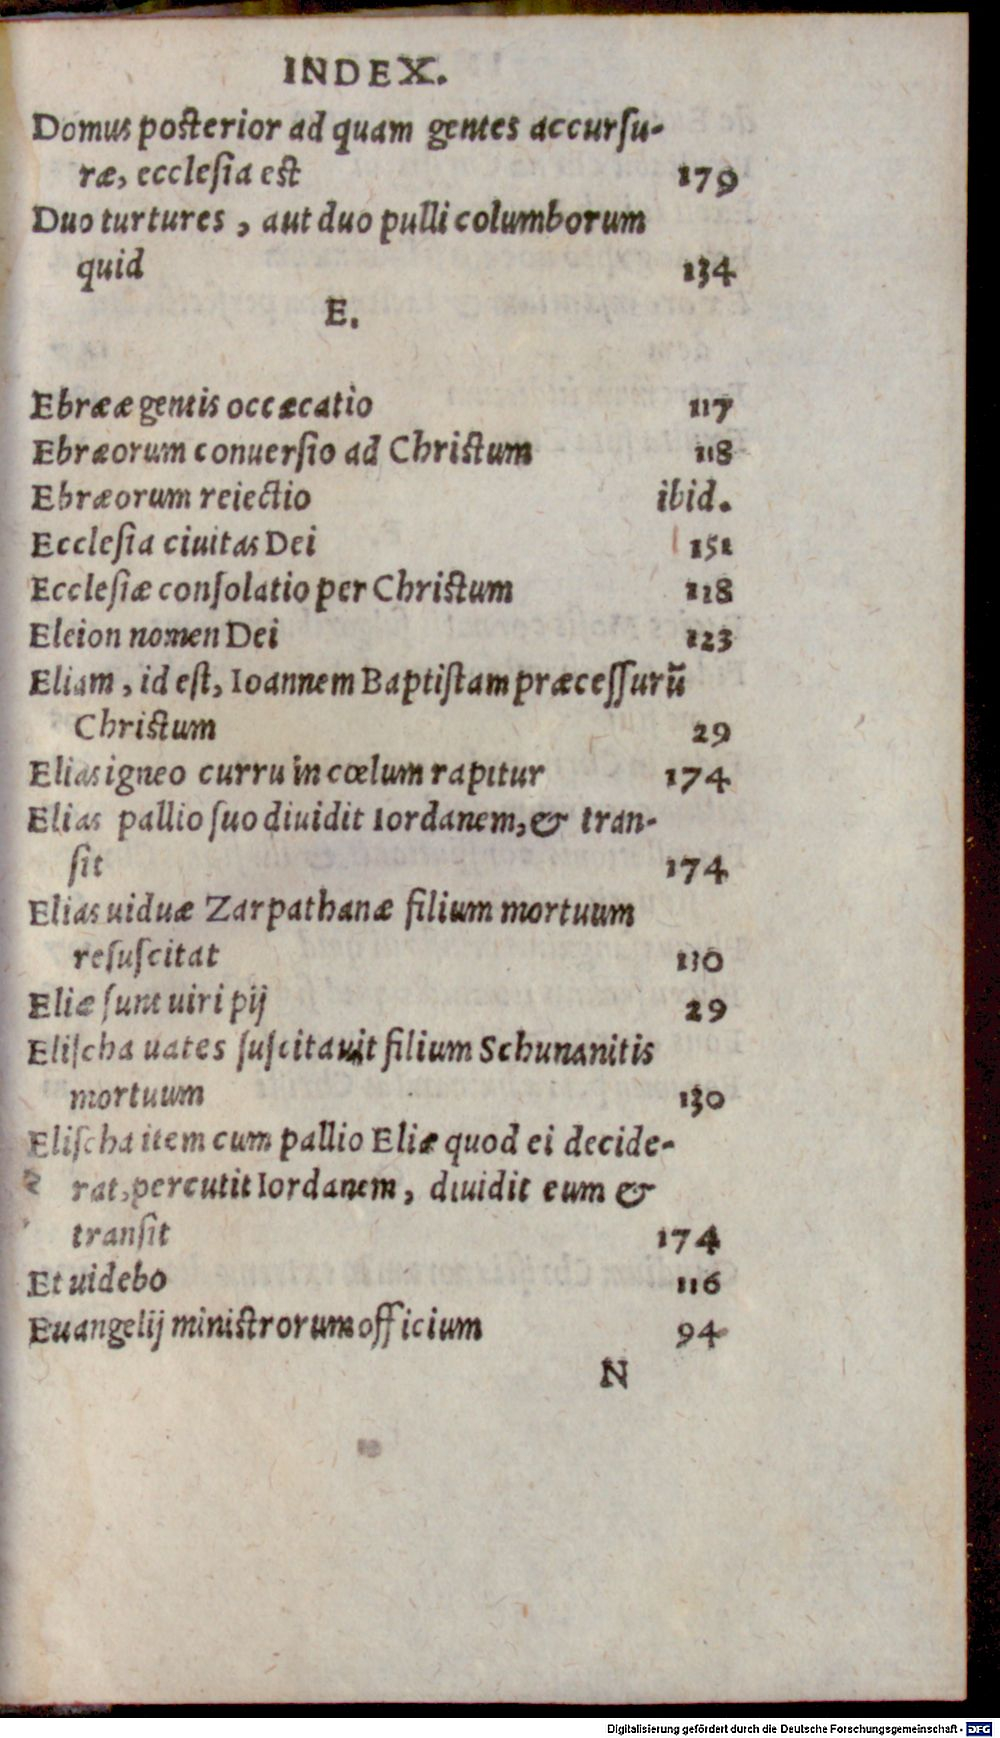 INDEX.
Domus posterior ad quam gentes accurſu-
ræ, ecclesia est 179
Duo turtures, aut duo pulli columborum
quid 134
E.
Ebrææ gentis occæcatio 117
Ebræorum conuerſio ad Christum 118
Ebræorum reiectio ibid.
Eccleſia ciuitas Dei 151
Eccleſiæ conſolatio per Christum 118
Eleion nomen Dei 123
Eliam, id eſt, Ioannem Baptiſtam præceſſurũ
Christum 29
Elias igneo curru in cœlum rapitur 174
Elias pallio ſuo diuidit Iordanem, & tran-
ſit 174
Elias uiduæ Zarpathanæ filium mortuum
reſuſcitat 130
Eliæ ſunt uiri pij 29
Eliſcha uates ſuſcitauit filium Schunanitis
mortuum 130
Eliſcha item cum pallio Eliæ quod ei decide-
rat, percutit Iordanem, diuidit eum &
tranſit 174
Et uidebo 116
Euangelij ministrorum officium 94
N
Digitalisierung gefördert durch die Deutsche Forschungsgemeinschaft - DFG